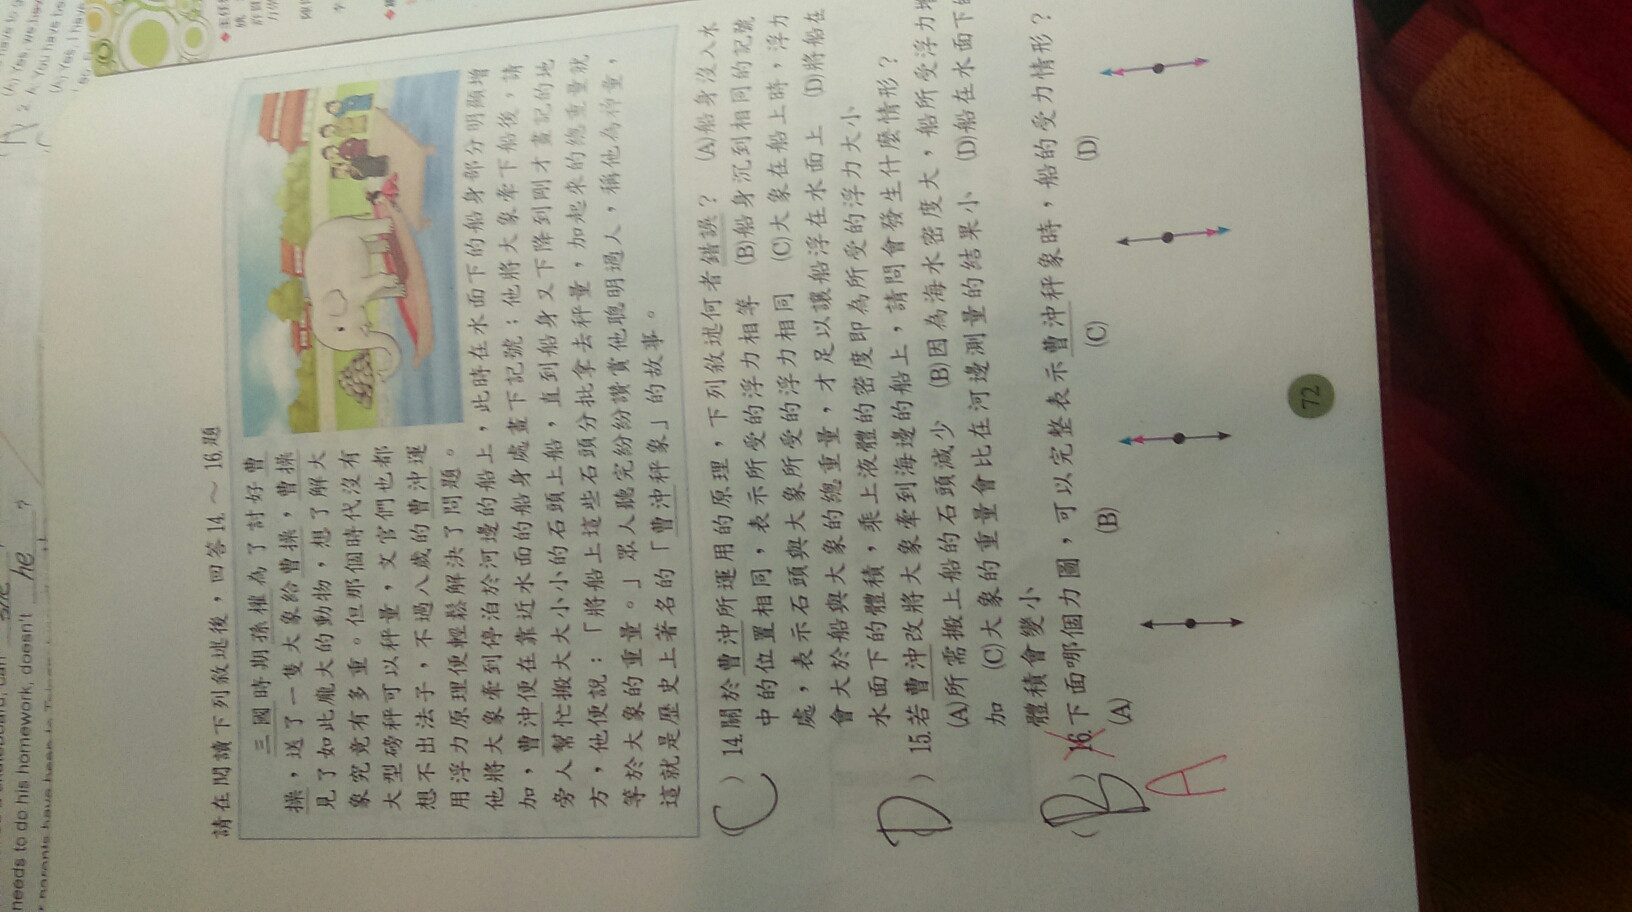 請在閱讀下列敘述後，回答14.～16.題
三國時期孫權為了討好曹
操，送了一隻大象給曹操，曹操
見了如此龐大的動物，想了解大
象究竟有多重。但那個時代沒有
大型磅秤可以秤量，文官們也都
想不出法子，不過八歲的曹沖運
用浮力原理便輕鬆解決了問題。
他將大象牽到停泊於河邊的船上，此時在水面下的船身部分明顯增
加，曹沖便在靠近水面的船身處畫下記號；他將大象牽下船後，請
旁人幫忙搬大大小小的石頭上船，直到船身又下降到剛才畫記的地
方，他便說：「將船上這些石頭分批拿去秤量，加起來的總重量就
等於大象的重量。」眾人聽完紛紛讚賞他聰明過人，稱他為神童，
這就是歷史上著名的「曹沖秤象」的故事。
(C) 14.關於曹沖所運用的原理，下列敘述何者錯誤？ (A)船身沒入水
中的位置相同，表示所受的浮力相等 (B)船身沉到相同的記號
處，表示石頭與大象所受的浮力相同 (C)大象在船上時，浮力
會大於船與大象的總重量，才足以讓船浮在水面上 (D)將船在
水面下的體積，乘上液體的密度即為所受的浮力大小
(D) 15.若曹沖改將大象牽到海邊的船上，請問會發生什麼情形？
(A)所需搬上船的石頭減少 (B)因為海水密度大，船所受浮力增
加 (C)大象的重量會比在河邊測量的結果小 (D)船在水面下的
體積會變小
(B) 16.下面哪個力圖，可以完整表示曹沖秤象時，船的受力情形？
A
(A) (B) (C) (D)
72
needs to do his homework, doesn't he ?
2. A: You have
(A) Yes, I have